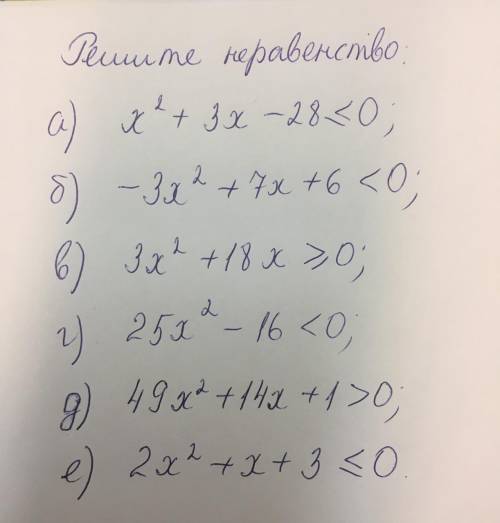 Решите неравенство:
а) x² + 3x - 28 ≤ 0;
б) -3x² + 7x + 6 < 0;
в) 3x² + 18x ≥ 0;
г) 25x² - 16 < 0;
д) 49x² + 14x + 1 > 0;
е) 2x² + x + 3 ≤ 0.